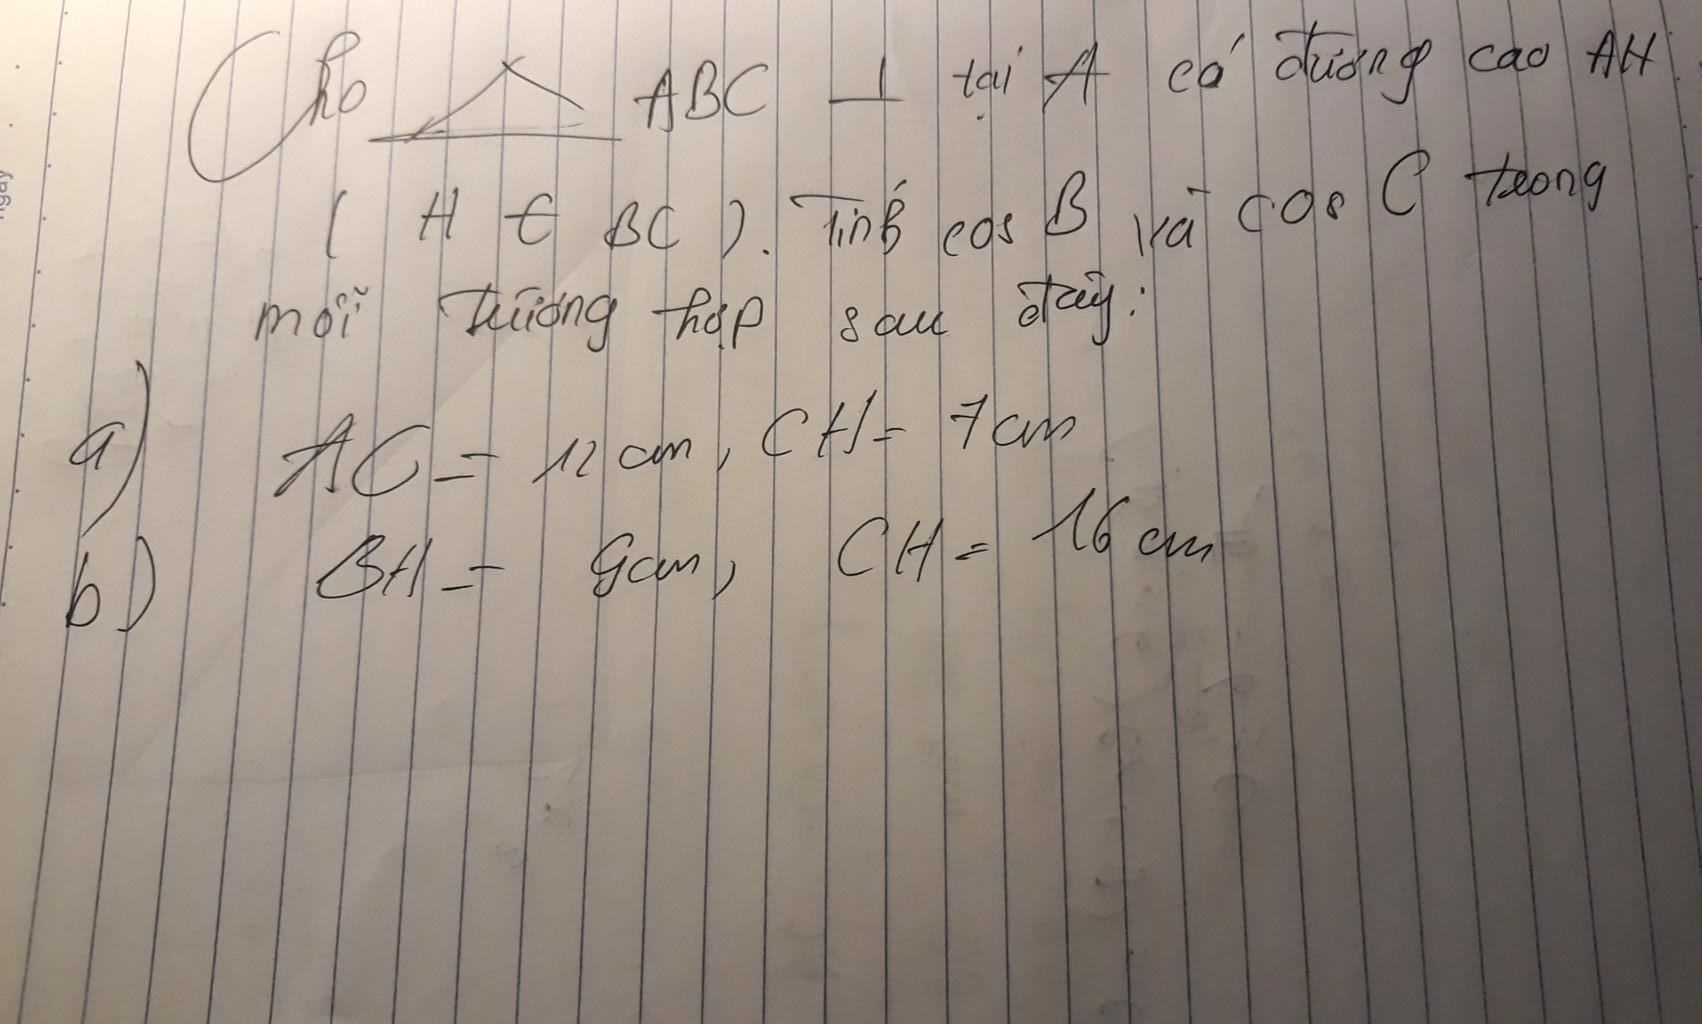 Cho △ ABC ⊥ tại A có đường cao AH
( H ∈ BC ). Tính cos B và cos C trong
mỗi trường hợp sau đây:
a) AC = 12 cm, CH = 7cm
b) BH = 9cm, CH = 16 cm
ngày